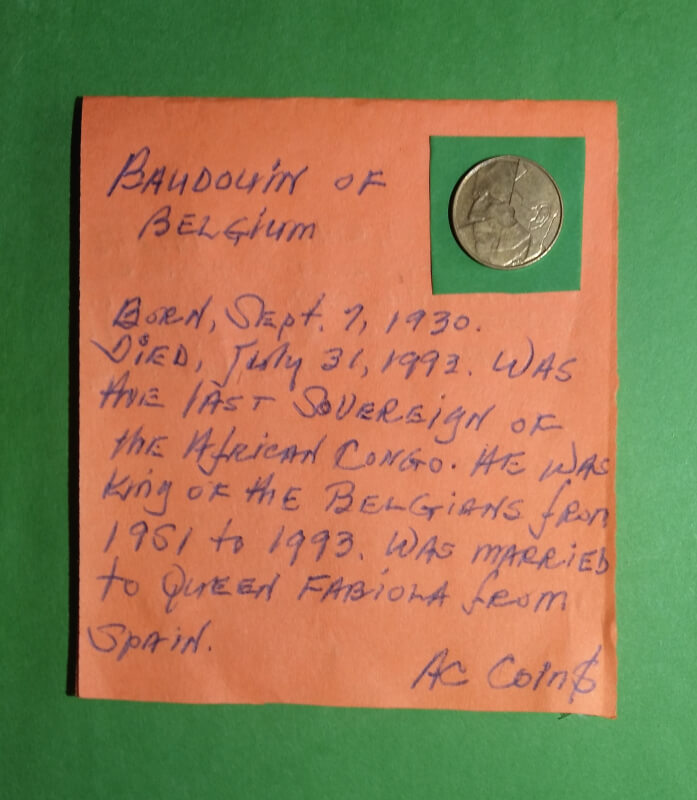 BAUDOUIN OF
BELGIUM
BORN, Sept. 7, 1930.
DiED, July 31, 1993. WAS
tHE lAST SOVEREIgN OF
tHE AfRiCAN CONGO. HE WAS
King OF tHE BELGIANS from
1951 to 1993. WAS MARRIED
to QUEEN FABIOLA from
SpAiN.
AC COin$